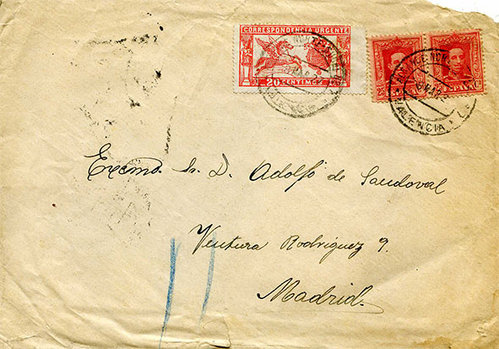 CORRESPONDENCIA URGENTE
20 CENTIMOS
ESPAÑA
VALENCIA
Excmo. Sr. D. Adolfo de Sandoval
Ventura Rodriguez 9.
Madrid.